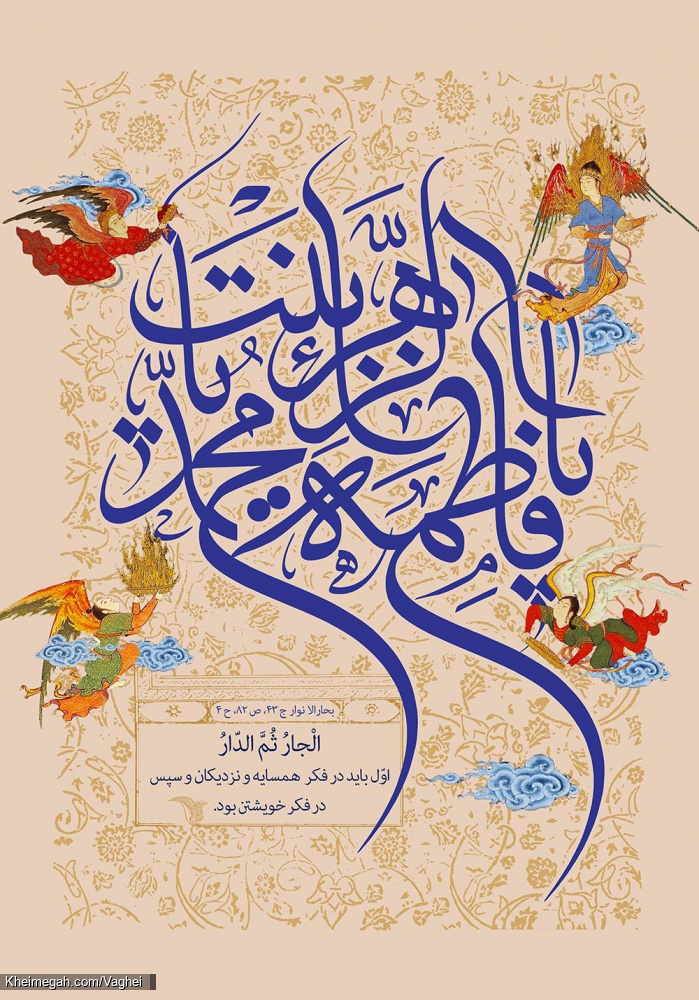 یا فاطمة الزهراء یا بنت محمد
بحارالانوار ج ۴۳، ص ۸۲، ح ۴
الْجارُ ثُمَّ الدّارُ
اوّل باید در فکر همسایه و نزدیکان و سپس
در فکر خویشتن بود.
Kheimegah.com/Vaghei